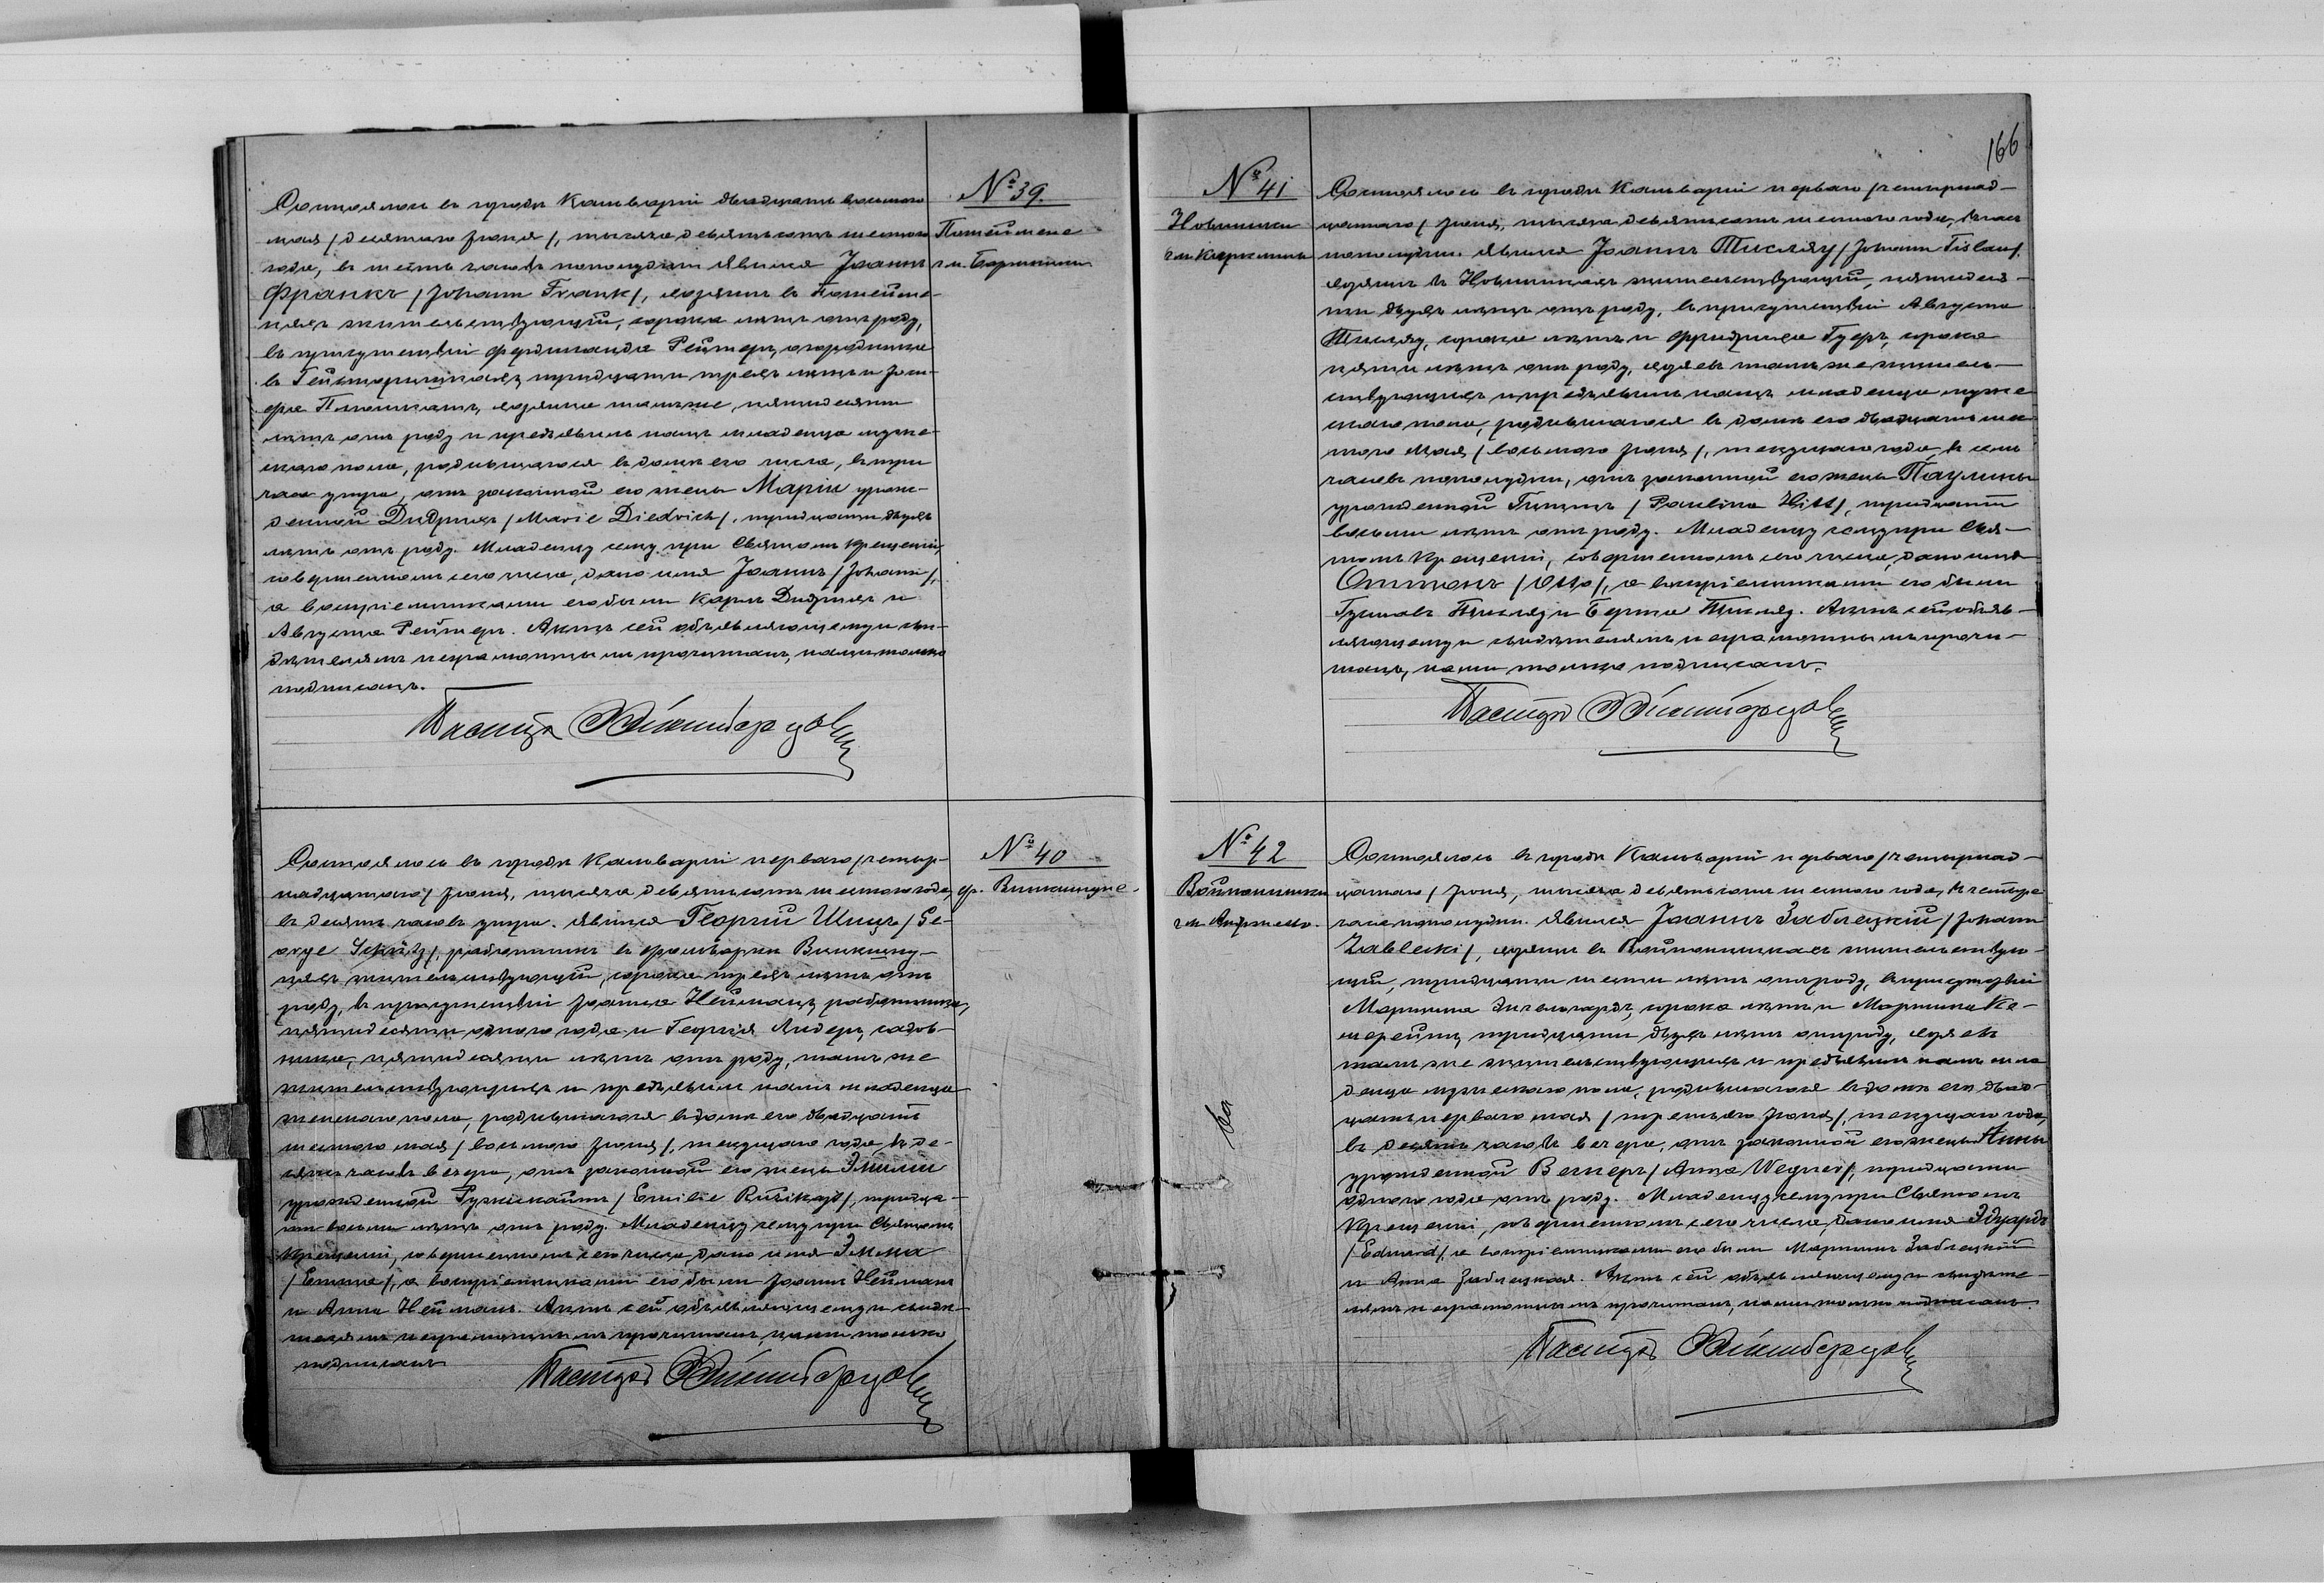 № 39.
Потеймене
гм. Бартники
Состоялось въ городѣ Кальваріи двадцать восьмого
мая / десятаго Іюня /, тысяча девятьсотъ шестого
года, въ шесть часовъ пополудни. Явился Іоаннъ
Франкъ / Johann Frank /, хозяинъ въ Потейме-
няхъ жительствующій, сорока лѣтъ отъ роду,
въ присутствіи Фердинанда Реймеръ, огородника
въ тридцати трехъ лѣтъ и
хозяина тамъ же, пятидесяти
лѣтъ отъ роду и предъявилъ намъ младенца муже-
скаго пола, родившагося въ домѣ его числа, въ три
часа утра, отъ законной его жены Маріи урож-
денной Дидрихъ / Marie Diedrich /, тридцати двухъ
лѣтъ отъ роду. Младенцу сему при Святомъ Крещеніи,
совершенномъ сего числа, дано имя Іоаннъ / Johann /,
а воспріемниками его были Карлъ Дидрихъ и
Августа Реймеръ. Актъ сей объявляющему и сви-
дѣтелямъ неграмотнымъ прочитанъ, нами только
подписанъ.
Пасторъ
№ 40
ф. Винкшнупе
Состоялось въ городѣ Кальваріи перваго / четыр-
надцатаго / Іюня, тысяча девятьсотъ шестого года,
въ десять часовъ утра. Явился Георгій Шицъ / Ge-
orge Schütz /, работникъ въ фольваркѣ Винкшну-
пяхъ жительствующій, сорока трехъ лѣтъ отъ
роду, въ присутствіи Іоанна Нейманъ, работника,
пятидесяти одного года и Георгія Андеръ, садов-
ника, пятидесяти лѣтъ отъ роду, тамъ же
жительствующихъ и предъявилъ намъ младенца
женскаго пола, родившагося въ домѣ его двадцать
шестого мая / восьмого Іюня /, текущаго года, въ де-
сять часовъ вечера, отъ законной его жены Эмиліи
урожденной Ружикайтъ / Emilie Ružikajt /, тридца-
ти восьми лѣтъ отъ роду. Младенцу сему при Святомъ
Крещеніи, совершенномъ сего числа, дано имя Эмма
/ Emma /, а воспріемниками его были Іоаннъ Нейманъ
и Анна Нейманъ. Актъ сей объявляющему и свидѣ-
телямъ неграмотнымъ прочитанъ, нами только
подписанъ
Пасторъ
166
№ 41
Новинники
гм.
Состоялось въ городѣ Кальваріи перваго / четырнад-
цатаго / Іюня, тысяча девятьсотъ шестого года, въ часъ
пополудни. Явился Іоаннъ Тисляу / Johann Tislau /,
хозяинъ въ Новинникахъ жительствующій, пятидеся-
ти двухъ лѣтъ отъ роду, въ присутствіи Августа
Тисляу, сорока лѣтъ и Фридриха Гуеръ, сорока
пяти лѣтъ отъ роду, хозяевъ тамъ же житель-
ствующихъ и предъявилъ намъ младенца муже
скаго пола, родившагося въ домѣ его двадцать шес
того Мая / восьмого Іюня /, текущаго года, въ семь
часовъ пополудни, отъ законной его жены Паулины
урожденной Гиттъ / Paulina Hitt /, тридцати
восьми лѣтъ отъ роду. Младенцу сему при Свя-
томъ Крещеніи, совершенномъ сего числа, дано имя
Оттонъ / Otto /, а воспріемниками его были
Густавъ Тисляу и Берта Тисляу. Актъ сей объяв-
ляющему и свидѣтелямъ неграмотнымъ прочи-
танъ, нами только подписанъ.
Пасторъ
№ 42
Войпонишки
гм.
Состоялось въ городѣ Кальваріи перваго / четырнад-
цатаго / Іюня, тысяча девятьсотъ шестого года, въ четыре
часа пополудни. Явился Іоаннъ Заблецкій / Johann
Zablecki /, хозяинъ въ Войпонишкахъ жительствую-
щій, тридцати шести лѣтъ отъ роду, въ присутствіи
Мартина Энгельгардъ, сорока лѣтъ и Мартина Ке-
тридцати двухъ лѣтъ отъ роду, хозяевъ
тамъ же жительствующихъ и предъявилъ намъ мла
денца мужескаго пола, родившагося въ домѣ его двад-
цать перваго мая / третьяго Іюня /, текущаго года,
въ десять часовъ вечера, отъ законной его жены Анны
урожденной Вегнеръ / Anna Wegner /, тридцати
одного года отъ роду. Младенцу сему при Святомъ
Крещеніи, совершенномъ сего числа, дано имя Эдуардъ
/ Eduard /, а воспріемниками его были Мартинъ Заблецкій
и Анна Заблецкая. Актъ сей объявляющему и свидѣте-
лямъ неграмотнымъ прочитанъ, нами только подписанъ.
Пасторъ